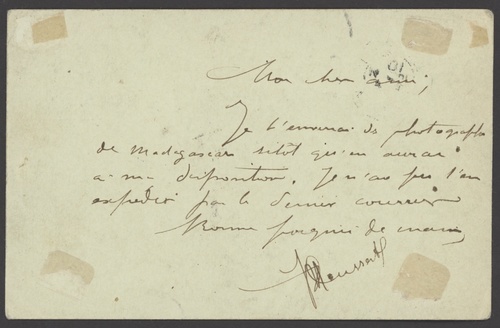 Mon cher ami,
Je t'enverrai ds photographs
de Madagascar sitôt qu'en aurai
a ma disposition. Je n'ai pu t'en
expedier par le dernier courrier
Bonne poignée de main